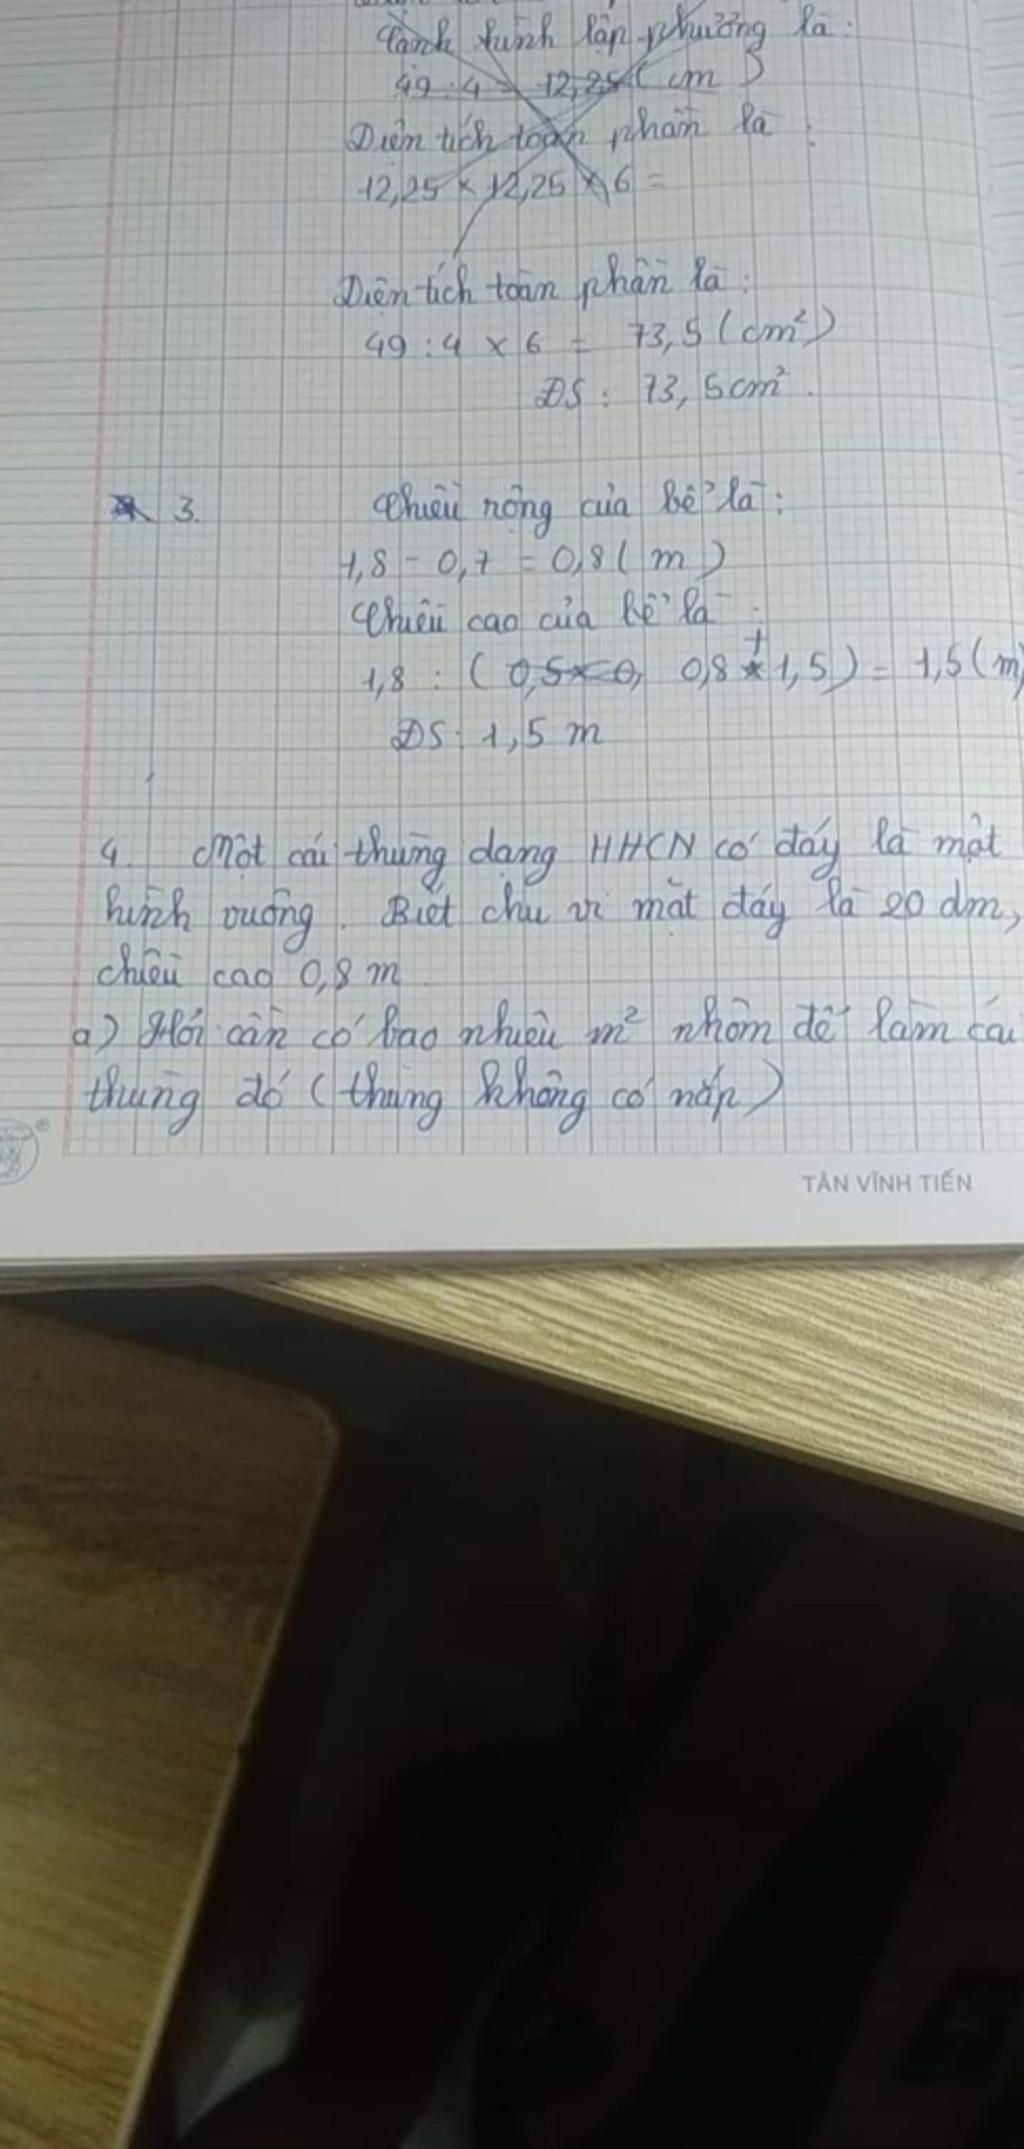 Cạnh hình lập phương là:
49 : 4 = 12,25 (cm)
Diện tích toàn phần là:
12,25 × 12,25 × 6 =
Diện tích toàn phần là:
49 : 4 × 6 = 73,5 (cm²)
ĐS : 73,5cm².
3. Chiều rộng của bể là:
1,8 - 0,7 = 0,8 (m)
Chiều cao của bể là:
1,8 : ( 0,5 × 0, 0,8 + 1,5) = 1,5 (m)
ĐS : 1,5 m
4. Một cái thùng dạng HHCN có đáy là một
hình vuông. Biết chu vi mặt đáy là 20 dm,
chiều cao 0,8 m
a) Hỏi cần có bao nhiêu m² nhôm để làm cái
thùng đó (thùng không có nắp)
TÂN VĨNH TIẾN